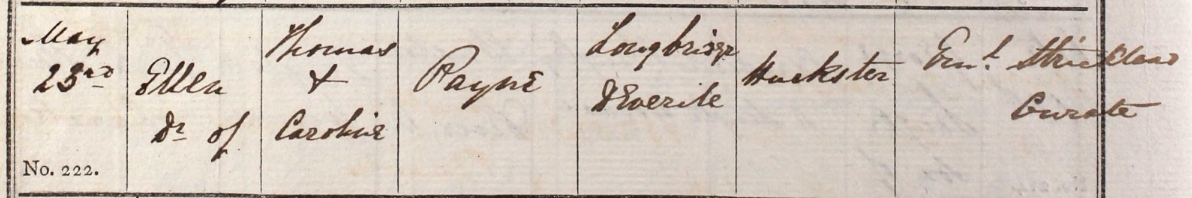 May
23rd
No. 222.
Ellen
Dr of
Thomas
&
Caroline
Payne
Longbridge
Deverile
Huckster
Strickland
Curate